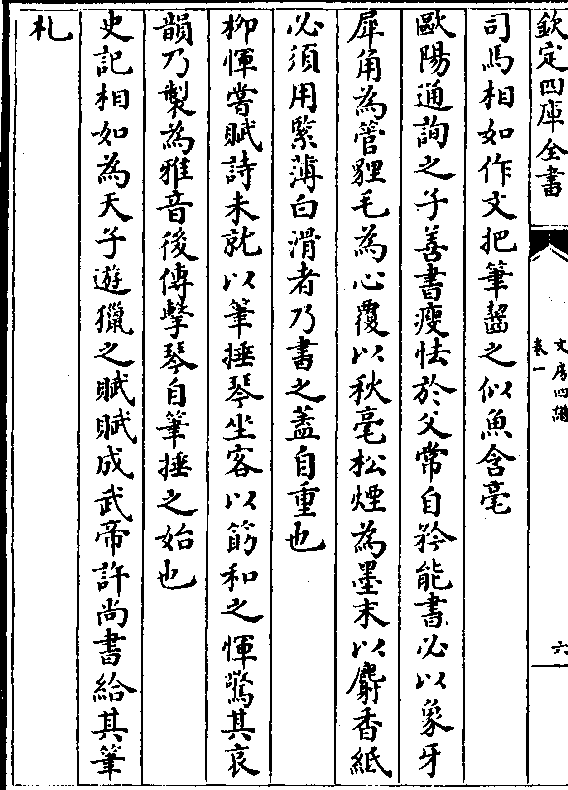 欽定四庫全書
文房四譜
卷一
六
司馬相如作文把筆齧之似魚含毫
歐陽通詢之子善書瘦怯於父常自矜能書必以象牙
犀角為管貍毛為心覆以秋毫松煙為墨末以麝香紙
必須用緊薄白滑者乃書之蓋自重也
柳惲嘗賦詩未就以筆捶琴坐客以筯和之惲驚其哀
韻乃製為雅音後傳擊琴自筆捶之始也
史記相如為天子遊獵之賦賦成武帝許尚書給其筆
札